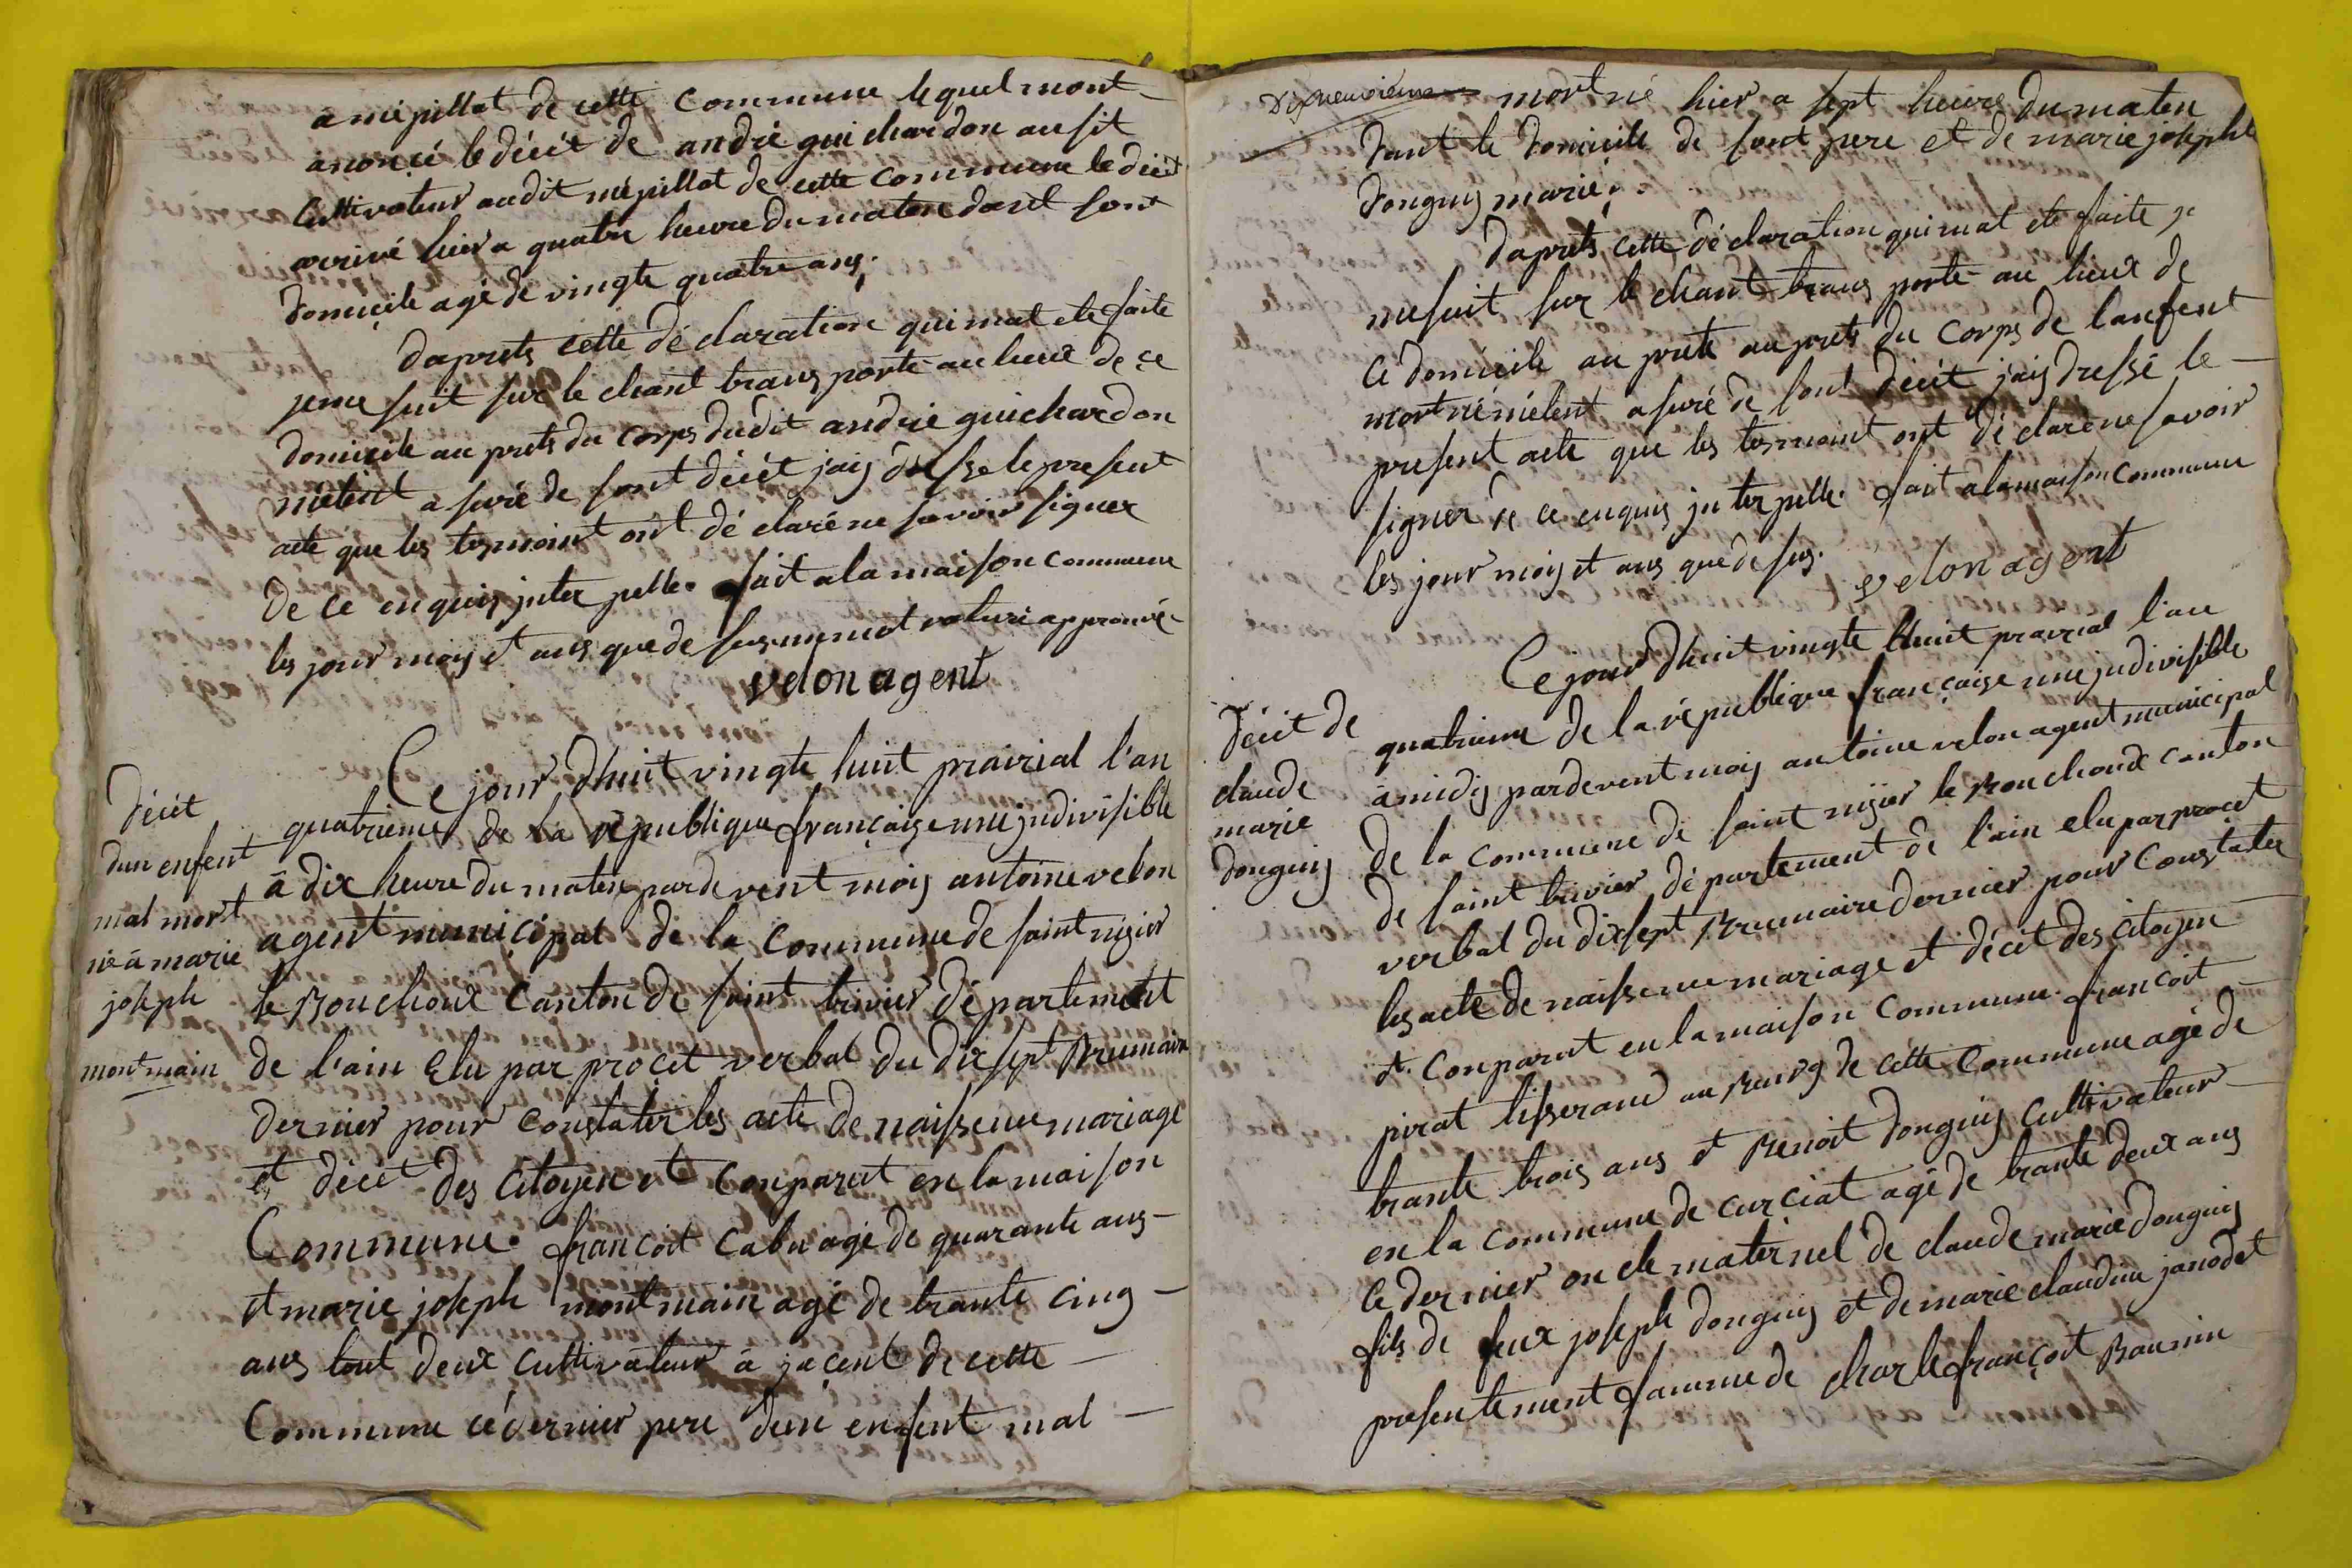 a mépillat de cette commune lequel mont
anoncé le décét de andré guichardon ausit
Cultivateur audit mépillat de cette commune le décét
arrivé hier a quatre heure du maten dant sont
domicile agé de vingte quatre ans.
daprets cette déclaration qui mat ete faite
je me suit sur le chant transporté au lieux de ce
domicile au prets du corps dudit andré guichardon
mélent asuré de sont décét jais dressé le present
acte que les tesmoint ont déclaré ne savoir signer
de ce enquis jnterpelle. fait a la maison commune
les jour mois et ans que de sus un mot raturé approuvé
velon agent
Ce jour dhuit vingte huit prairial l'an
quatrieme de la république française une jndivisible
à dix heure du maten pardevent mois antoine velon
agent municipal de la commune de saint nizier
le Bouchoux Canton de saint trivier département
de l'ain élu par procét verbal du dix sept Brumaire
dernier pour constater les acte de naissence mariage
et décét des citoyen et conparut en la maison
Commune. francoit cabu agé de quarante ans
et marie joseph montmain agé de trante cinq
ans tout deux cultivateur à jacent de cette
Commune cé dernier pere dun enfent mal
décét
dun enfent
mal mort
né à marie
joseph
montmain
Dixneuvieme
mort né hier a sept heure du maten
dant le domicile de sont pere et de marie josephte
donguy mariés.
daprets cette déclaration qui mat ete faite je
me suit sur le chant transporté au lieux de
ce domicile au prets au prets du corps de lanfent
mort né mélent asuré de sont décét jais dressé le
present acte que les tesmoint ont déclaré ne savoir
signer de ce enquis jnterpelle. fait a la maison commune
les jour mois et ans que de sus.
velon agent
Ce jour dhuit vingte huit prairial l'an
quatrieme de la république française une jndivisible
a midis pardevent mois antoine velon agent municipal
de la commune de saint nizier le Bouchoux canton
de saint trivier département de l'ain elu par procét
verbal du dix sept Brumaire dernier pour constater
les acte de naissence mariage et décét des citoyen
et conparut en la maison commune. francoit
pirat tisserand au Bourg de cette commune agé de
trante trois ans et Benoit donguy cultivateur
en la commune de curciat agé de trante deux ans
ce dernier oncle maternel de claude marie donguy
fils de feux joseph donguy et de marie claudine janodet
presentement famme de charle françoit Baunin
décét de
claude
marie
donguy